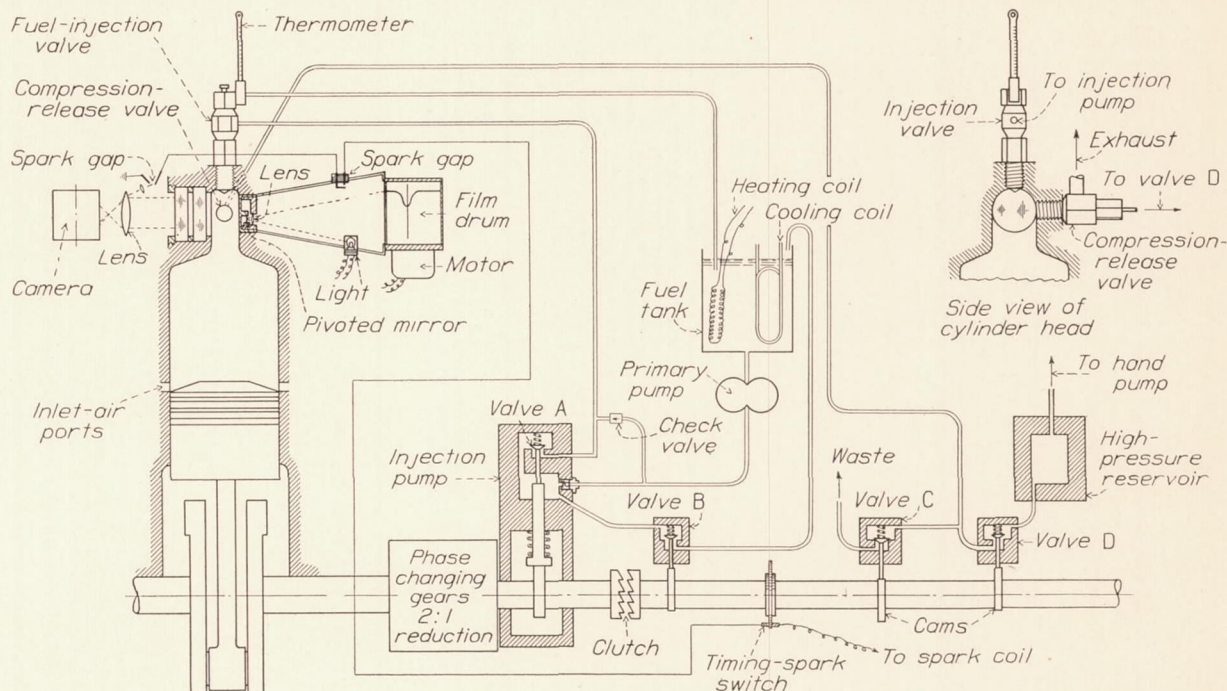 Fuel-injection
valve
Thermometer
Compression-
release valve
Spark gap
Lens
Spark gap
Film
drum
Lens
Motor
Camera
Light
Pivoted mirror
Inlet-air
ports
Heating coil
Cooling coil
Fuel
tank
Primary
pump
Valve A
Check
valve
Injection
pump
Valve B
Phase
changing
gears
2:1
reduction
Clutch
Timing-spark
switch
To spark coil
Waste
Valve C
Cams
Valve D
High-
pressure
reservoir
To hand
pump
To injection
pump
Injection
valve
Exhaust
To valve D
Compression-
release
valve
Side view of
cylinder head